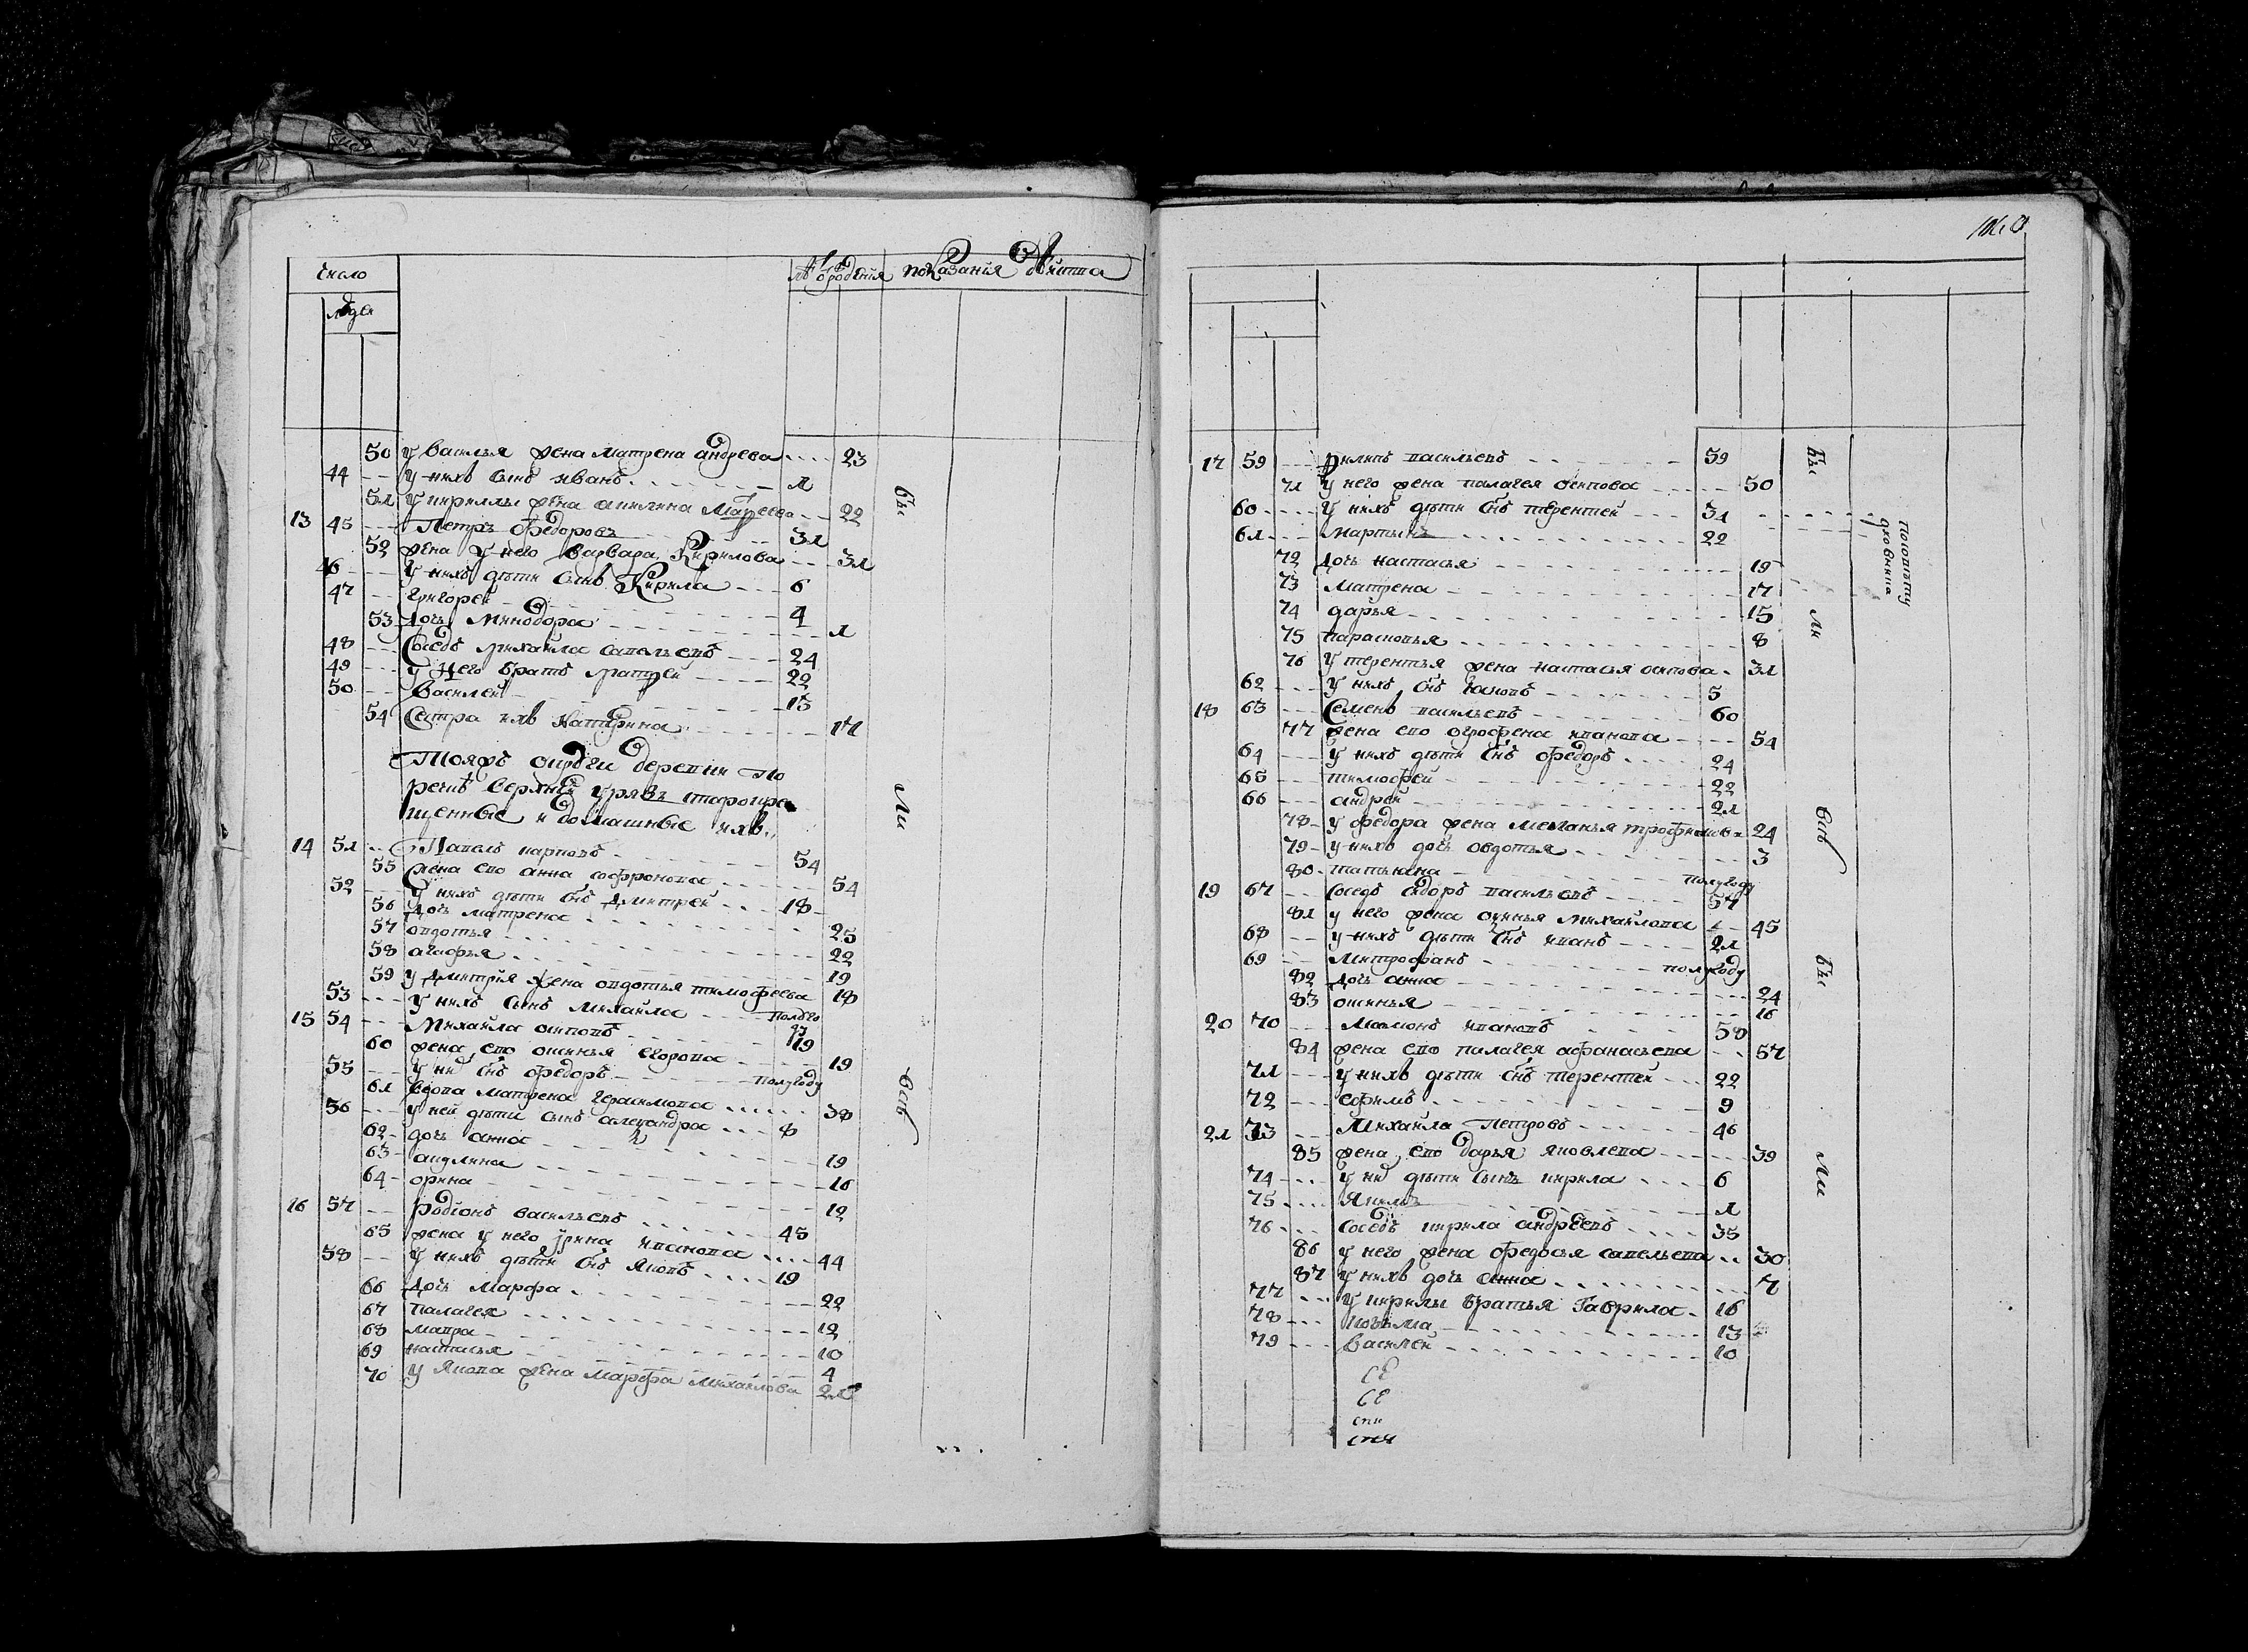 число
людей
лѣ рожденiя показанiя действа
50 у василья жена матрена андреева 23
44 у нихъ сынъ иванъ 1
51 у кириллы жена акилина 22
13 45 Петръ федоровъ 31
52 жена у него варвара Кирилова 31
46 у нихъ дѣти сынъ Кирила 6
47 григорей 4
53 дочь Минодора 1
48 Соседъ михаила савельевъ 24
49 у него братъ матфей 22
50 василей 15
54 Сестра ихъ катерина 17
Тояжъ округи деревни По
речкѣ верхнiй урявъ старокре
щенные и домашные ихъ
14 51 Павелъ карповъ 54
55 жена ево анна софронова 54
52 у нихъ дѣти снъ дмитрей 18
56 дочь матрена 25
57 овдотья 22
58 агафья 19
59 у дмитрiя жена овдотья тимофеева 18
53 у нихъ сынъ михаила полуго
15 54 Михаила осиповъ 19
60 жена ево оксинья егорова 19
55 у ни снъ федоръ полугоду
61 вдова матрена герасимова 38
56 у ней дѣти сынъ александра 8
62 дочь анна 19
63 акулина 16
64 орина 12
16 57 Родiонъ васильевъ 45
65 жена у него ирина иванова 44
58 у нихъ дѣти снъ яковъ 19
66 дочь марфа 22
67 палагея 12
68 мавра 10
69 настасья 4
70 у якова жена марфа михаилова 21
бы
ли
всѣ
17 59 филипъ васильевъ 59
71 у него жена палагея осипова 50
60 у нихъ дѣти снъ терентей 31
61 мартынъ 22
72 дочь настасья 19
73 матрена 17
74 дарья 15
75 парасковья 8
76 у терентья жена настасья осипова 31
62 у нихъ снъ яковъ 5
18 63 Семенъ васильевъ 60
77 жена ево огрофена иванова 54
64 у нихъ дѣти снъ федоръ 24
65 тимофей 22
66 андрей 21
78 у федора жена меланья трофимова 24
79 у нихъ дочь овдотья 3
80 татьяна полугоду
19 67 соседъ сидоръ васильевъ 57
81 у него жена оксинья михаилова 45
68 у нихъ дѣти снъ иванъ 21
69 митрофанъ полугоду
82 дочь анна 24
83 оксинья 16
20 70 Мамонъ ивановъ 58
84 жена ево палагея афанасьева 57
71 у нихъ дѣти снъ терентей 22
72 ефимъ 9
21 73 Михаила Петровъ 46
85 жена ево дарья яковлева 39
74 у ни дѣти сынъ кирила 6
75 якимъ 1
76 соседъ кирила андреевъ 35
86 у него жена федосья савельева 30
87 у нихъ дочь анна 7
77 у кирилы братья Гаврила 16
78 козьма 13
79 василей 10
СЕ
СЕ
бы
ли
всѣ
бы
ли
духовника